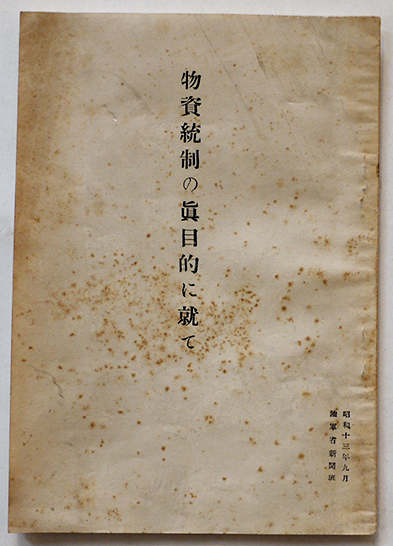 物資統制の眞目的に就て
昭和十三年九月
陸軍省新聞班